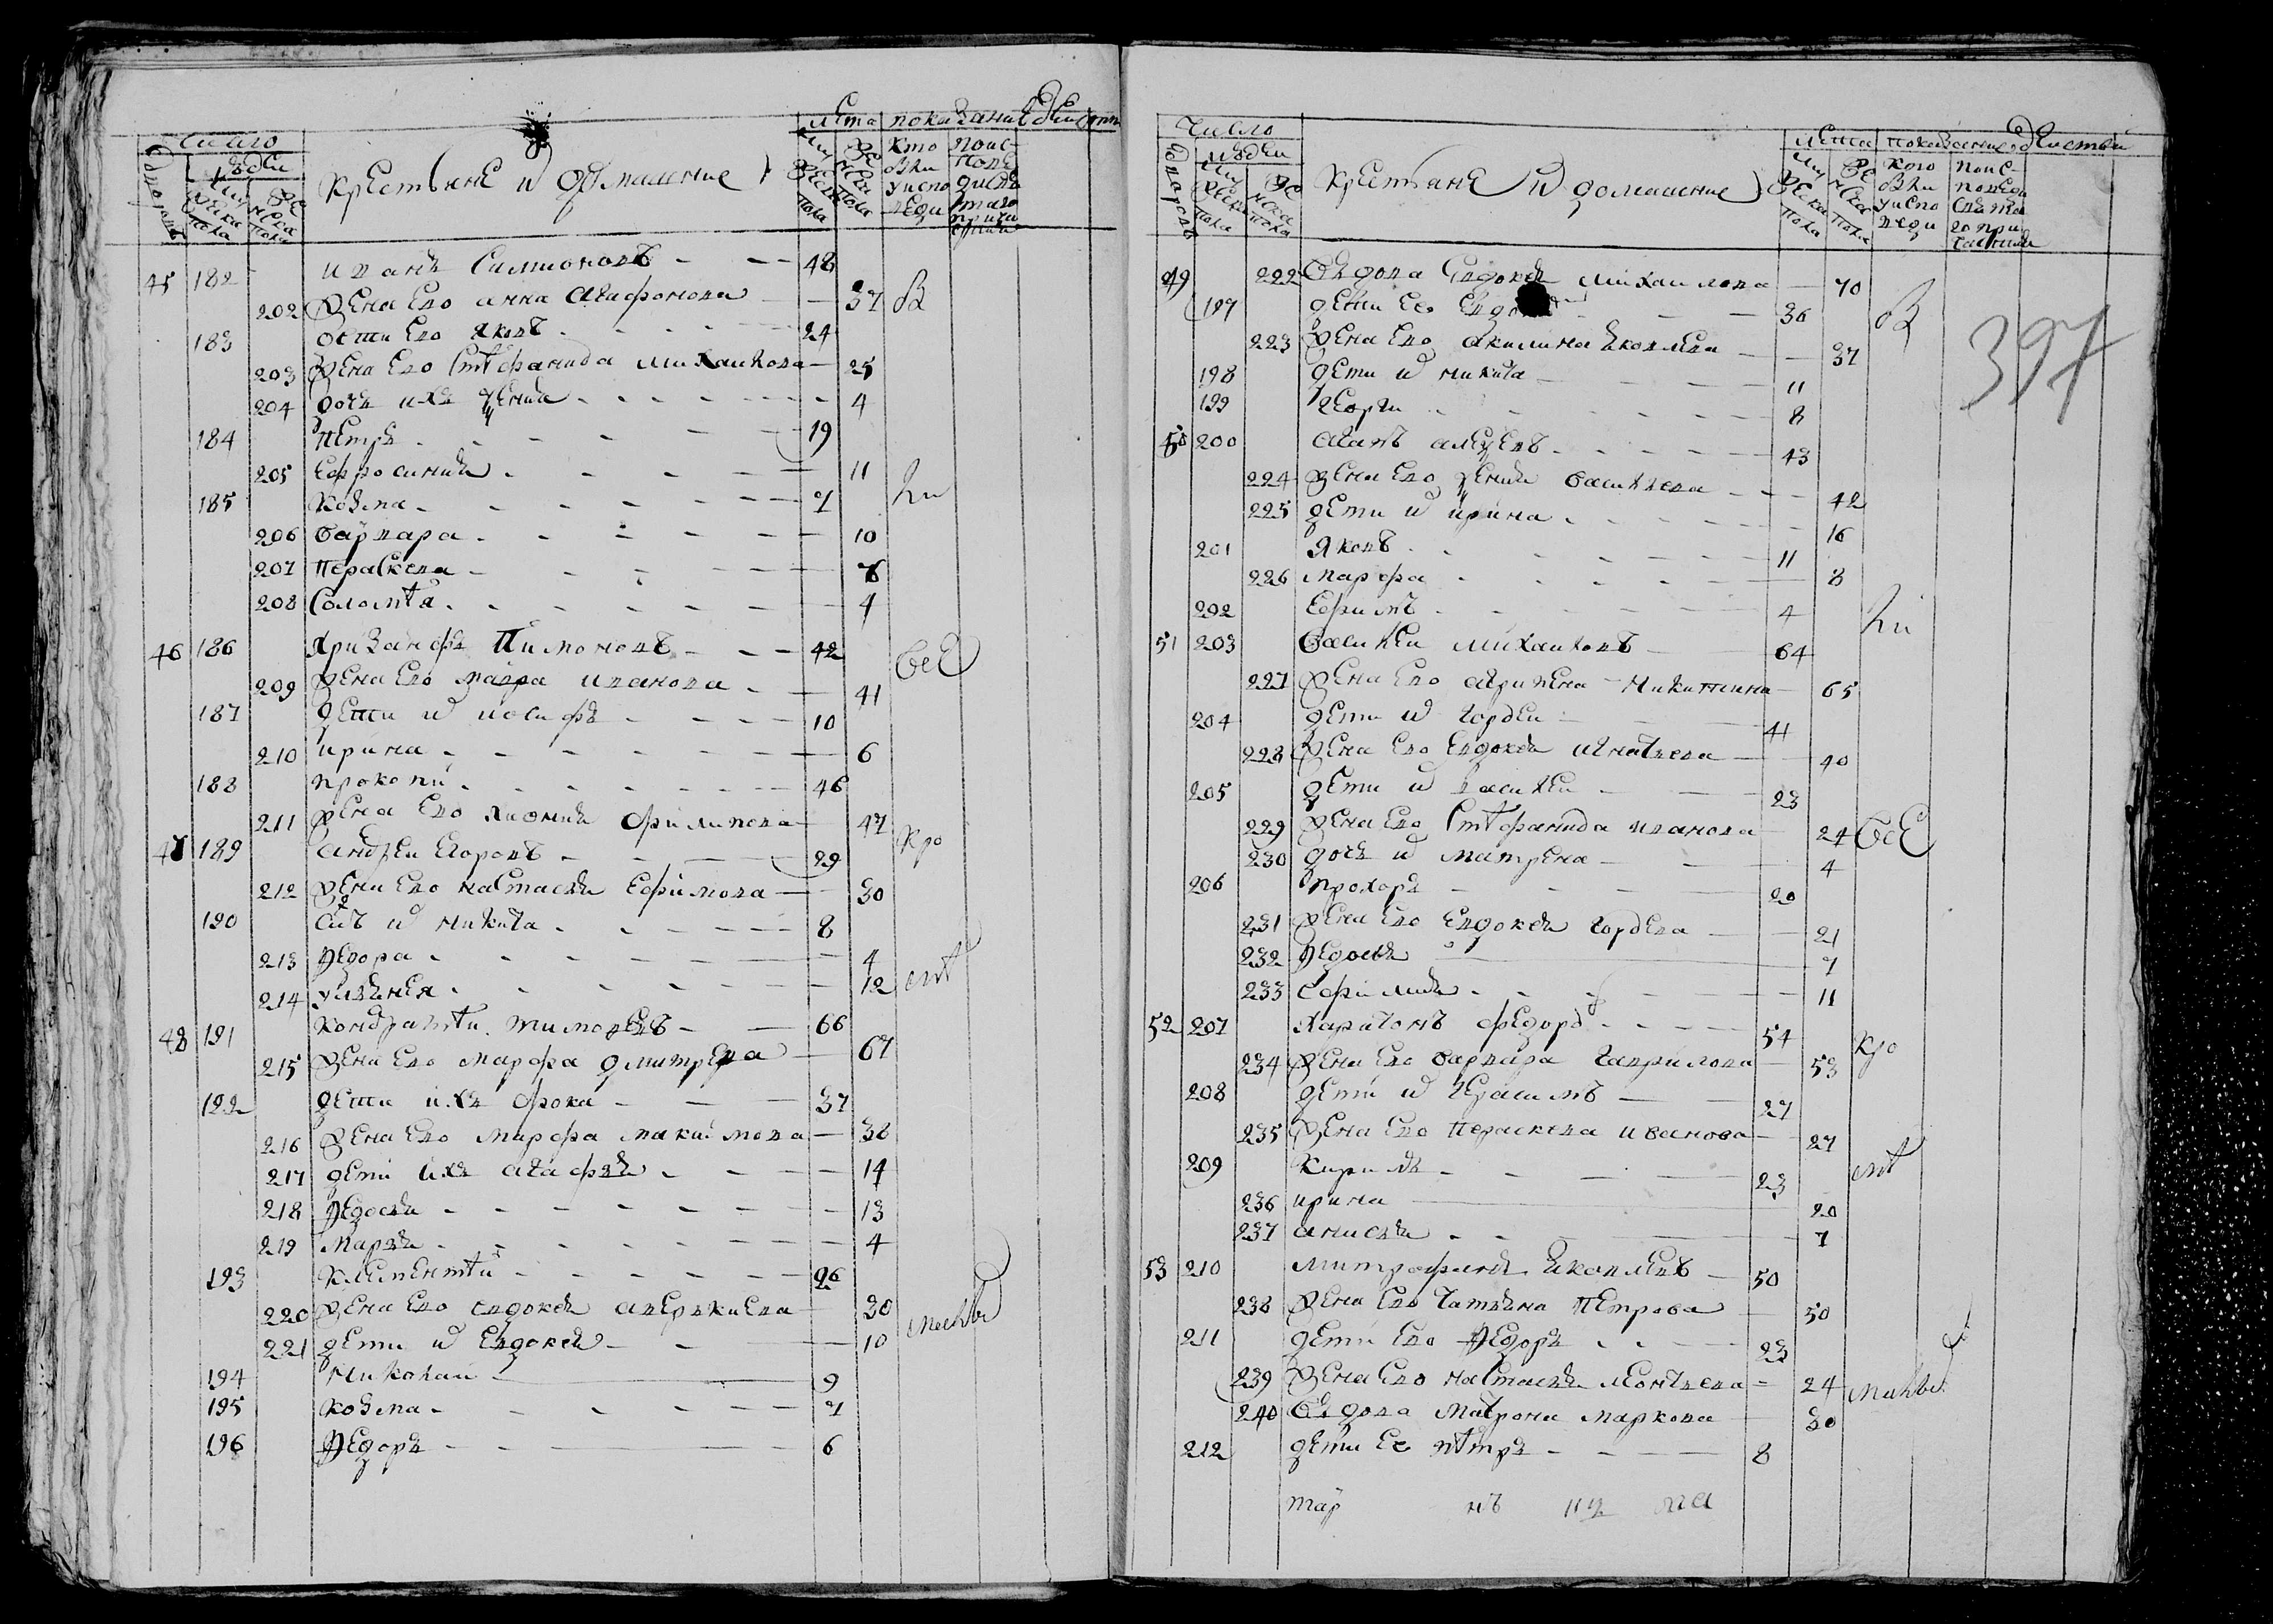 число лѣта показание действи
дворовъ людеи мужеска пола женска пола крестьяне и домашние мужеска пола женска пола кто были у исповеди
45 182 иванъ Симионовъ 48
202 жена ево анна агафонова 37 В
183 дети ево яковъ 24
203 жена ево Стефанида михаилова 25
204 дочь ихъ ѯения 4
184 петръ 19
205 Ефросиния 11
185 козма 7 ли
206 варвара 10
207 Параскева 8
208 Соломѣя 4
46 186 Хрисанфъ Пимоновъ 42 все
209 жена ево мавра иванова 41
187 дети их иосифъ 10
210 ирина 6
188 прокопи 46
211 жена ево хиония филипова 47
47 189 андреи егоровъ 29 кро
212 жена ево настасья Ефимова 30
190 сынъ их никита 8
213 Федора 4
214 улянея 12 мѣ
48 191 кондратеи тимофевъ 66
215 жена ево марфа дмитрева 67
192 дети ихъ фока 37
216 жена ево марфа макимова 38
217 дети ихъ агафья 14
218 Федосья 13
219 маря 4
193 Клементѣи 26
220 жена ево евдокея аверькиева 30
221 дети их Евдокея 10
194 николаи 9
195 козма 7
196 Федоръ 6
число лета показание о действи
дворовъ людеи мужеска пола женска пола крестьяне и домашние мужеска пола женска пола кого были у исповеди
49 222 Вдова Евдокея михаилова 70
197 дети ее 36 В
223 жена ево акилина яковлева 37
198 дети их никита 11
199 георги 8
397
50 200 агапъ алѯевъ 43
224 жена ево ѯения василева 42
225 дети их ирина 16
201 яковъ 11
226 марфа 8
202 Ефимъ 4 ли
51 203 василеи михаиловъ 64
227 жена ево агрипена никитина 65
204 дети их гордеи 41
228 жена ево Евдокея игнатева 40
205 дети их василеи 23
229 жена ево Стефанида иванова 24 все
230 дочь их матрена 4
206 прохоръ 20
231 жена ево Евдокея гордева 21
232 Федосья 7
233 Ефимия 11
52 207 Харитонъ федоровъ 54 кро
234 жена ево варвара гаврилова 53
208 дети их герасимъ 27
235 жена ево параскева иванова 27
209 Кирилъ 23 мѣ
236 ирина 20
237 анисья 7
53 210 митрофанъ яковлевъ 50
238 жена ево татьяна петрова 50
211 дети ево Федоръ 23
239 жена ево настасья леонтьева 24
240 Вдова матрона маркова 30
212 дети ее пѣтръ 8